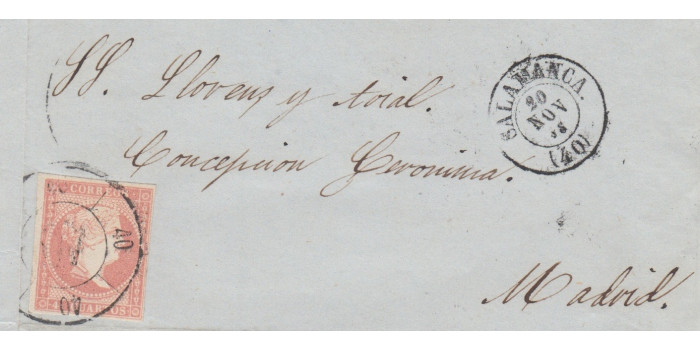 SS. Llorens y
Concepcion Geronima.
Madrid.
SALAMANCA.
20
NOV
(40)
CORREOS
40
40
CUARTOS